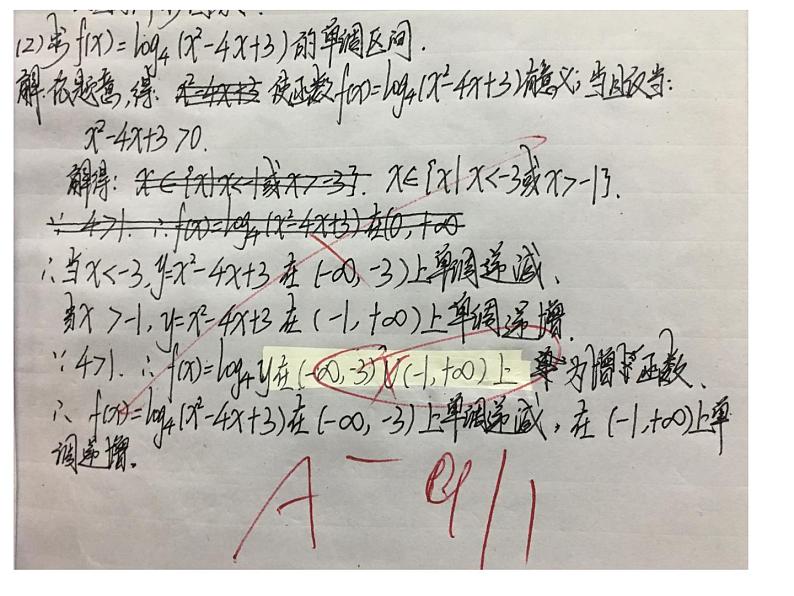 (2)求f(x)=log₄(x²-4x+3)的单调区间.
解:依题意,得: x²-4x+3 使函数f(x)=log₄(x²-4x+3)有意义;当且仅当:
x²-4x+3>0.
解得: x∈{x|x<-1或x>-3}. x∈{x|x<-3或x>-1}.
∵ 4>1. ∴f(x)=log₄(x²-4x+3)在(0,+∞
∴当x<-3,y=x²-4x+3 在(-∞,-3)上单调递减、
当x>-1,y=x²-4x+3在(-1,+∞)上单调递增.
∵4>1. ∴f(x)=log₄y在(-∞,-3)∪(-1,+∞)上 为增函数、
∴ f(x)=log₄(x²-4x+3)在(-∞,-3)上单调递减,在(-1,+∞)上单
调递增.
A⁻ 9/1